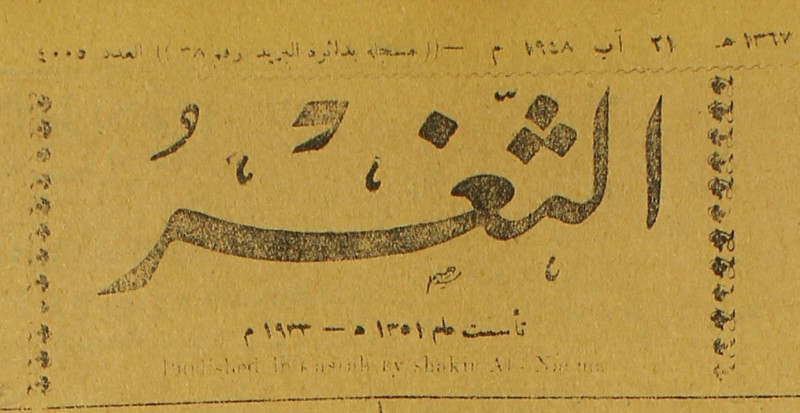 ١٣٦٧ هـ ٢١ آب ١٩٤٨ م — (( مسجلة بدائرة البريد رقم ٣٨ )) العدد ٤٠٠٥
الثغر
تأست عام ١٣٥١ ه — ١٩٣٣ م
Published in by shakir Al-